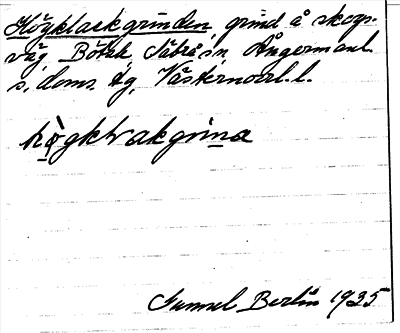 Högklackgrinden, grind å skogs-
väg Böttek, Säbrå sn, Ångermanl.
s. doms. tg, Västernorrl. l.
hògkḷakgrina
Gunnel Berlin 1935